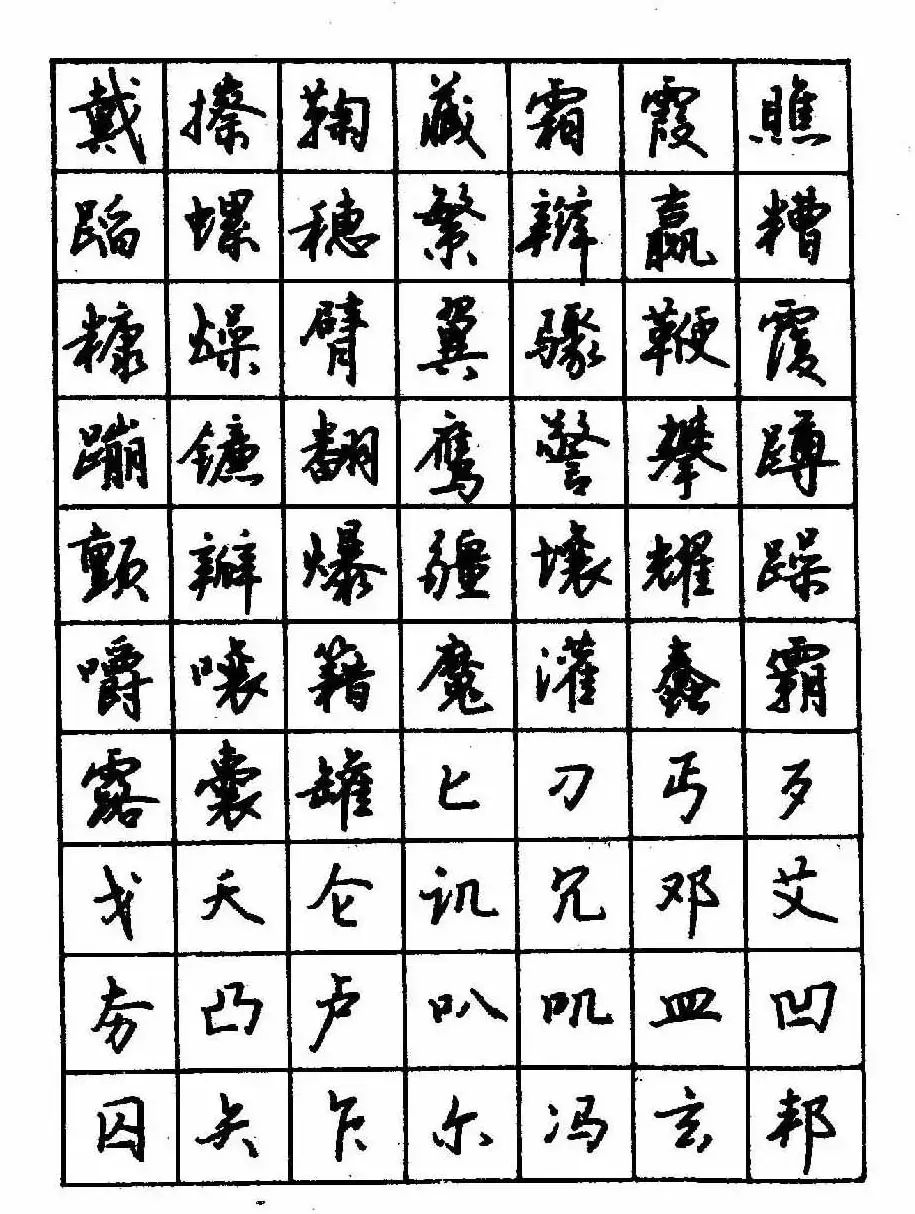 戴擦鞠藏霜霞瞧
蹈螺穗繁辫赢糟
糠燥臂翼骤鞭覆
蹦镰翻鹰警攀蹲
颤瓣爆疆壤耀躁
嚼嚷籍魔灌蠢霸
露囊罐匕刁丐歹
戈夭仑讥冗邓艾
夯凸卢叭叽皿凹
囚矢乍尔冯玄邦